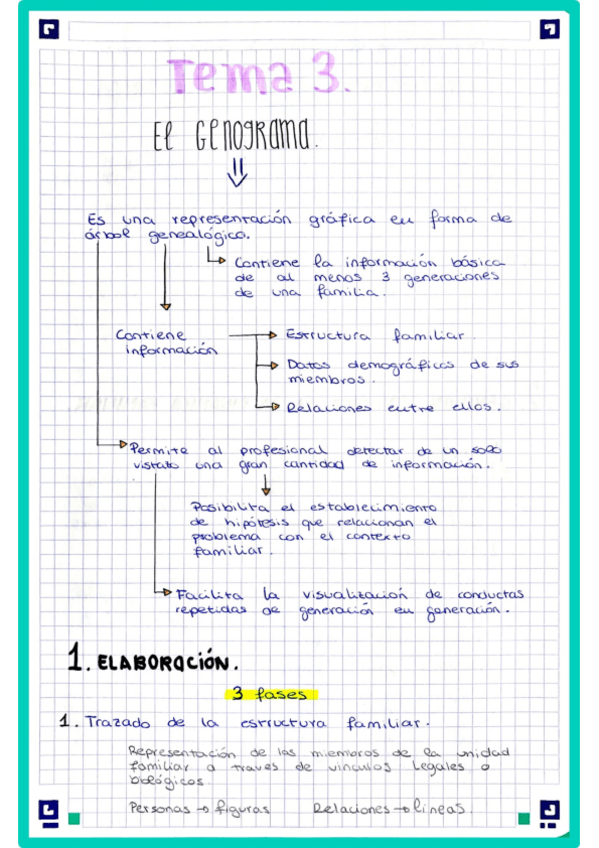 Tema 3.
El Genograma.
Es una representación gráfica en forma de
árbol genealógico.
Contiene la información básica
de al menos 3 generaciones
de una familia.
Contiene
información
Estructura familiar.
Datos demográficos de sus
miembros.
Relaciones entre ellos.
Permite al profesional detectar de un solo
vistato una gran cantidad de información.
Posibilita el establecimiento
de hipótesis que relacionan el
problema con el contexto
familiar.
Facilita la visualización de conductas
repetidas de generación en generación.
1. ELABORACIÓN.
3 fases
1. Trazado de la estructura familiar.
Representación de los miembros de la unidad
familiar a traves de vinculos legales o
biológicos
Personas → figuras Relaciones → lineas.